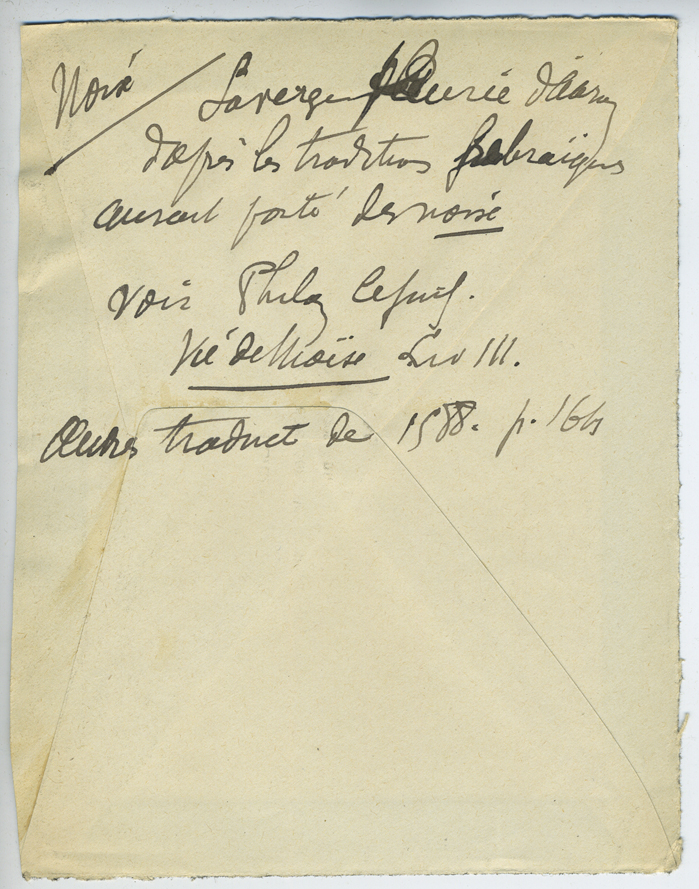 Noix La verge fleurie d'Aaron
d'après les traditions hebraiques
aurait porté des noix
voir Philon le Juif.
Vie de Moïse Liv III.
Œuvres traduct de 1588. p. 166